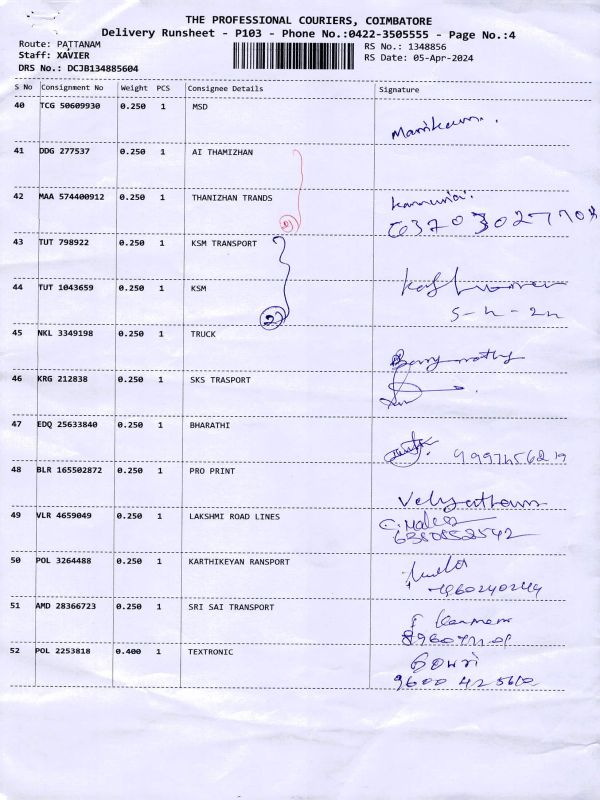 THE PROFESSIONAL COURIERS, COIMBATORE
Delivery Runsheet - P103 - Phone No.:0422-3505555 - Page No.:4
Route: PATTANAM
Staff: XAVIER
DRS No.: DCJB134885604
RS No.: 1348856
RS Date: 05-Apr-2024
S No Consignment No Weight PCS Consignee Details Signature
40 TCG 50609930 0.250 1 MSD
41 DDG 277537 0.250 1 AI THAMIZHAN
42 MAA 574400912 0.250 1 THANIZHAN TRANDS
63703027708
43 TUT 798922 0.250 1 KSM TRANSPORT
44 TUT 1043659 0.250 1 KSM
2
5-4-24
45 NKL 3349198 0.250 1 TRUCK
46 KRG 212838 0.250 1 SKS TRASPORT
47 EDQ 25633840 0.250 1 BHARATHI
48 BLR 165502872 0.250 1 PRO PRINT
49 VLR 4659049 0.250 1 LAKSHMI ROAD LINES
50 POL 3264488 0.250 1 KARTHIKEYAN RANSPORT
51 AMD 28366723 0.250 1 SRI SAI TRANSPORT
52 POL 2253818 0.400 1 TEXTRONIC
Gowri